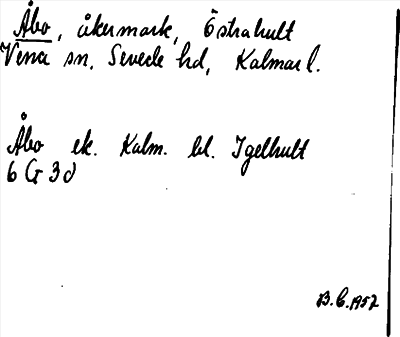 Åbo, åkermark, Östrahult
Vena sn, Sevede hd, Kalmar l.
Åbo ek. Kalm. bl. Igelhult
6 G 3 d
B.C. 1957